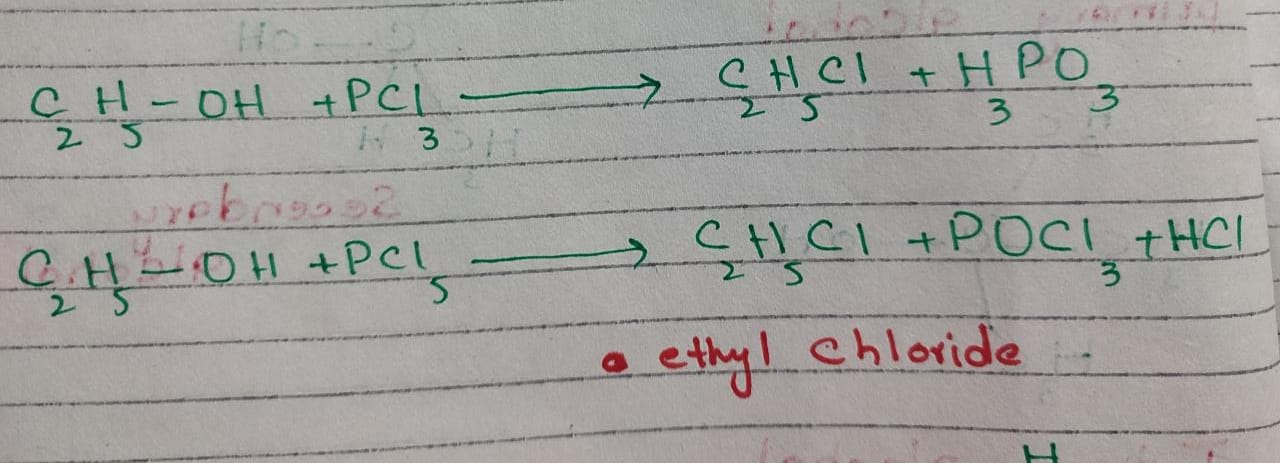 C₂H₅-OH + PCl₃ ⟶ C₂H₅Cl + H₃PO₃
C₂H₅-OH + PCl₅ ⟶ C₂H₅Cl + POCl₃ + HCl
• ethyl chloride
H